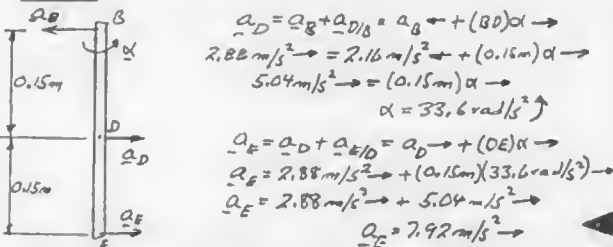 a_B
B
α
0.15m
D
a_D
0.15m
a_E
E
a_D = a_B + a_D/B = a_B ← + (BD)α →
2.88 m/s² → = 2.16 m/s² ← + (0.15m)α →
5.04 m/s² → = (0.15m)α →
α = 33.6 rad/s² ↺
a_E = a_D + a_E/D = a_D → + (DE)α →
a_E = 2.88 m/s² → + (0.15m)(33.6 rad/s²) →
a_E = 2.88 m/s² → + 5.04 m/s² →
a_E = 7.92 m/s² →